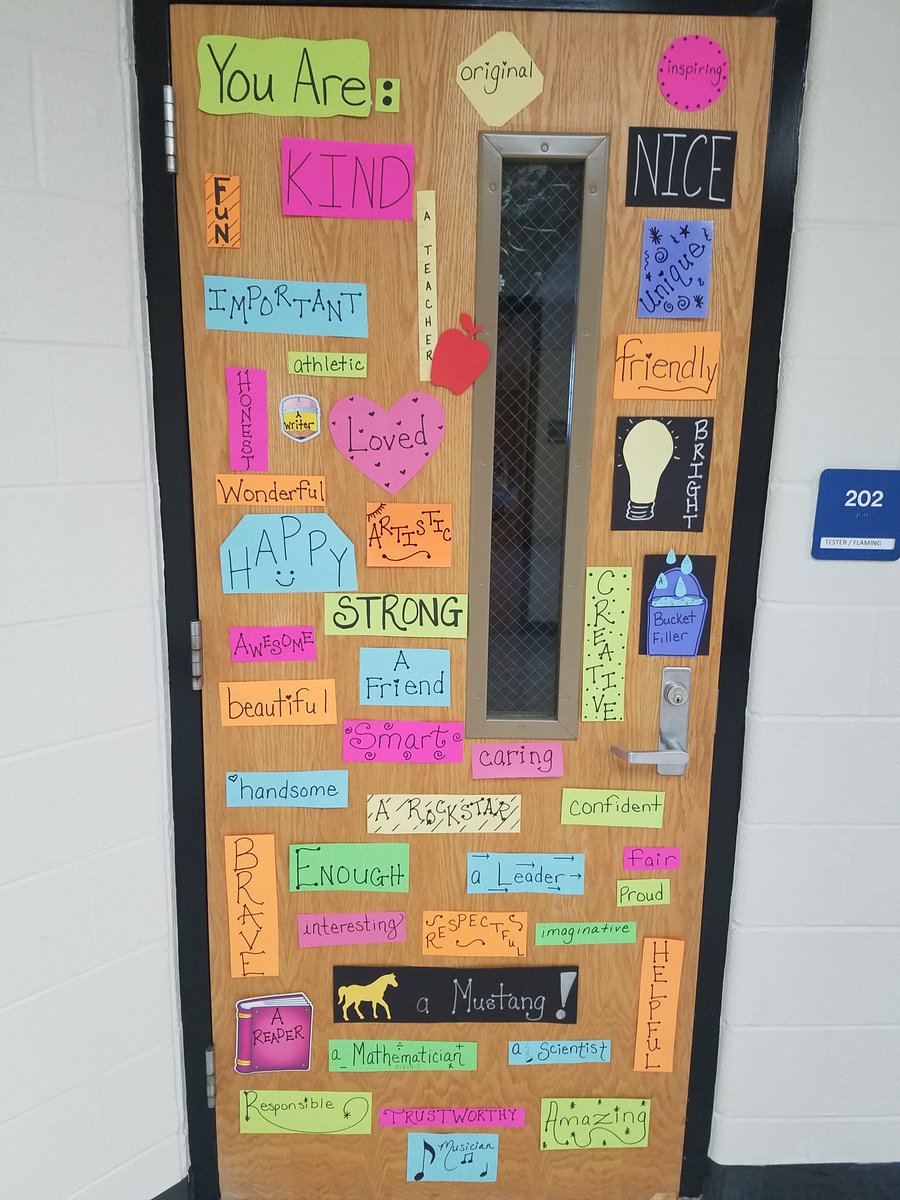 You Are:
original
inspiring
KIND
NICE
FUN
A TEACHER
unique
IMPORTANT
friendly
athletic
HONEST
A
writer
Loved
BRIGHT
Wonderful
ARTISTIC
HAPPY
202
TESTER / FLAMING
STRONG
CREATIVE
Bucket
Filler
AWESOME
A
Friend
beautiful
Smart
caring
handsome
A ROCKSTAR
confident
BRAVE
ENOUGH
a Leader
fair
Proud
interesting
RESPECTFUL
imaginative
HELPFUL
a Mustang!
A
READER
a Mathematician
a Scientist
Responsible
TRUSTWORTHY
AMAZING
Musician